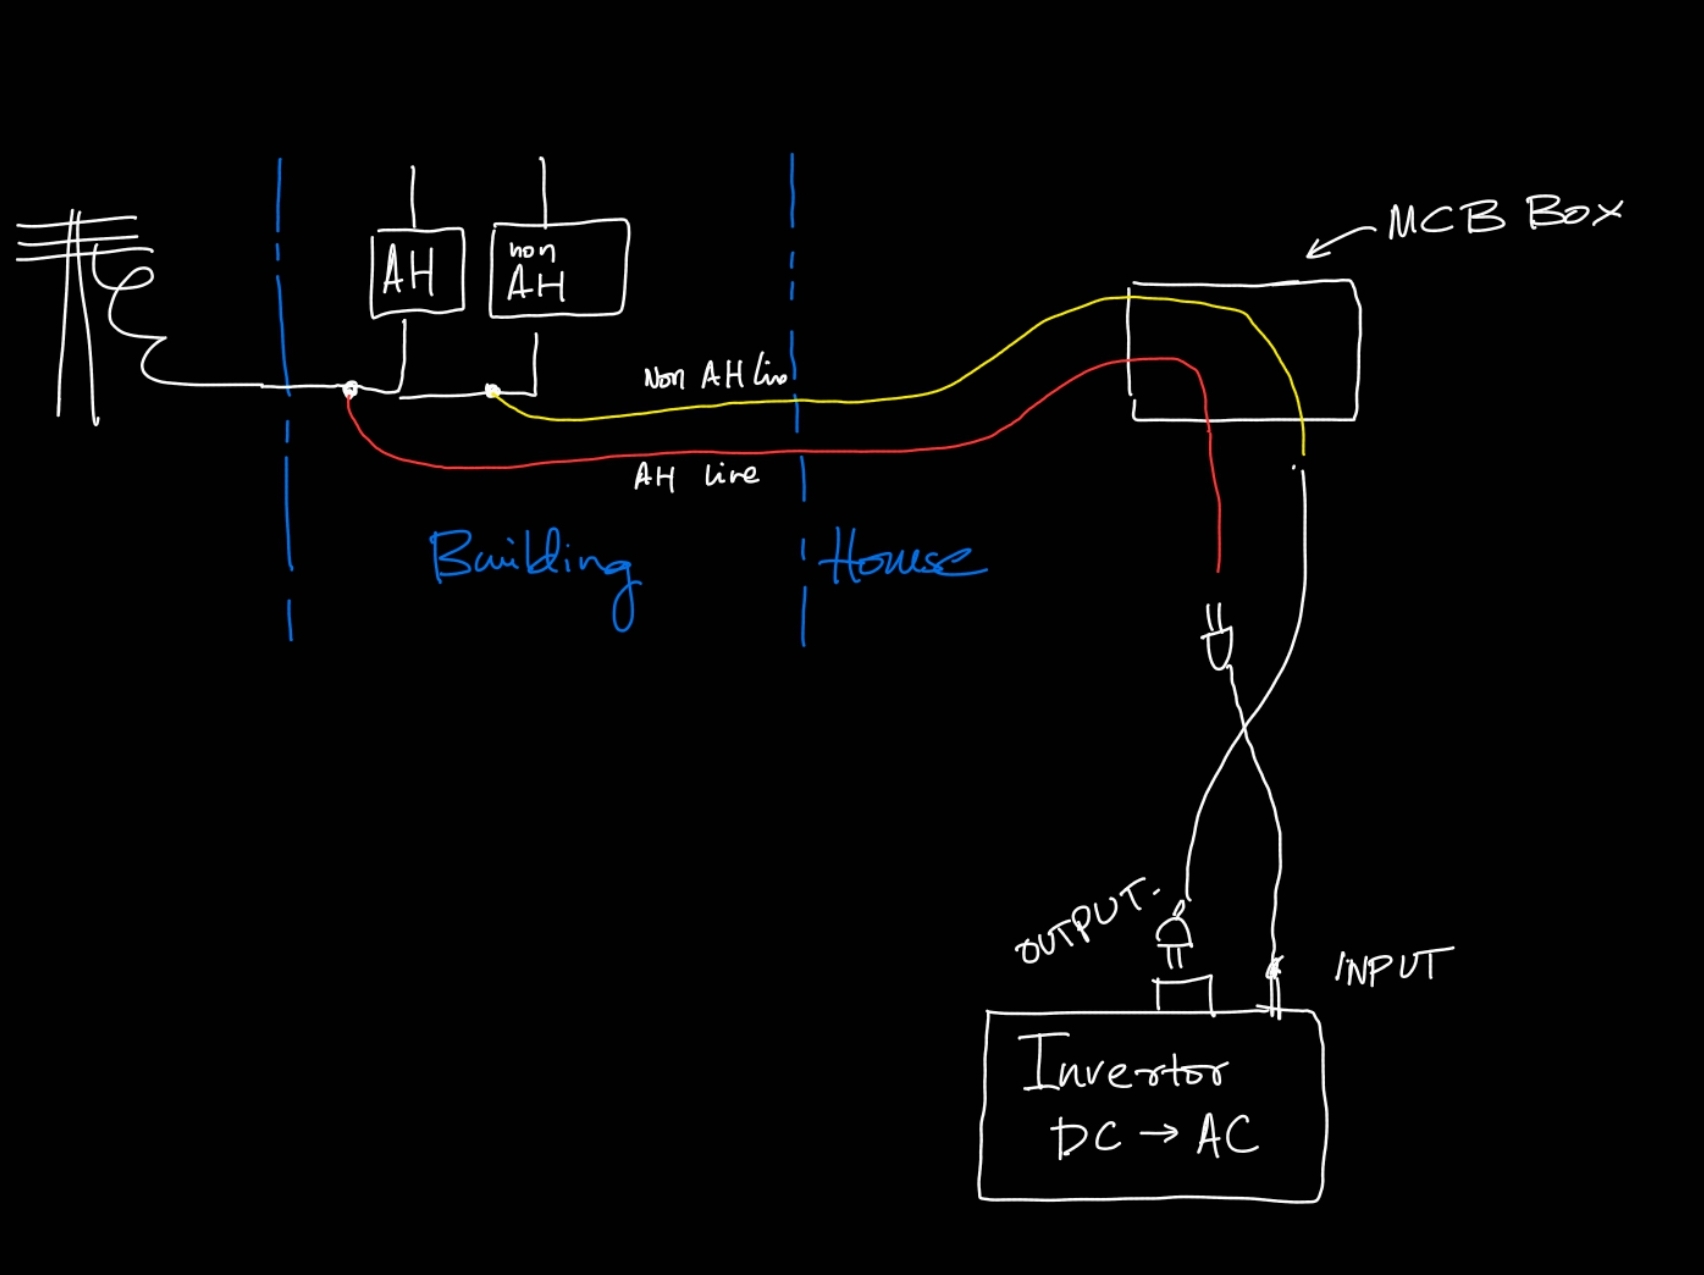 MCB Box
AH
non
AH
Non AH Line
AH Line
Building
House
OUTPUT.
INPUT
Invertor
DC → AC